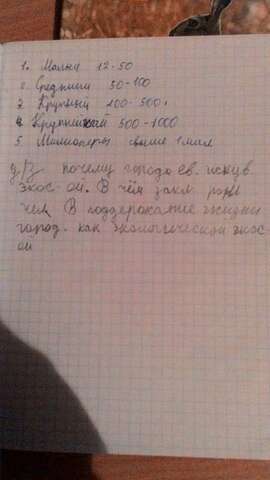 1. Малый 12-50
2. Средний 50-100
3. Крупный 100-500
4. Крупнейший 500-1000
5. Миллионеры свыше 1 мил
д/з почему города яв. искус
экос-ой. В чём закл. роль
чем. В поддержание жизни
город. как экологической экос
ой